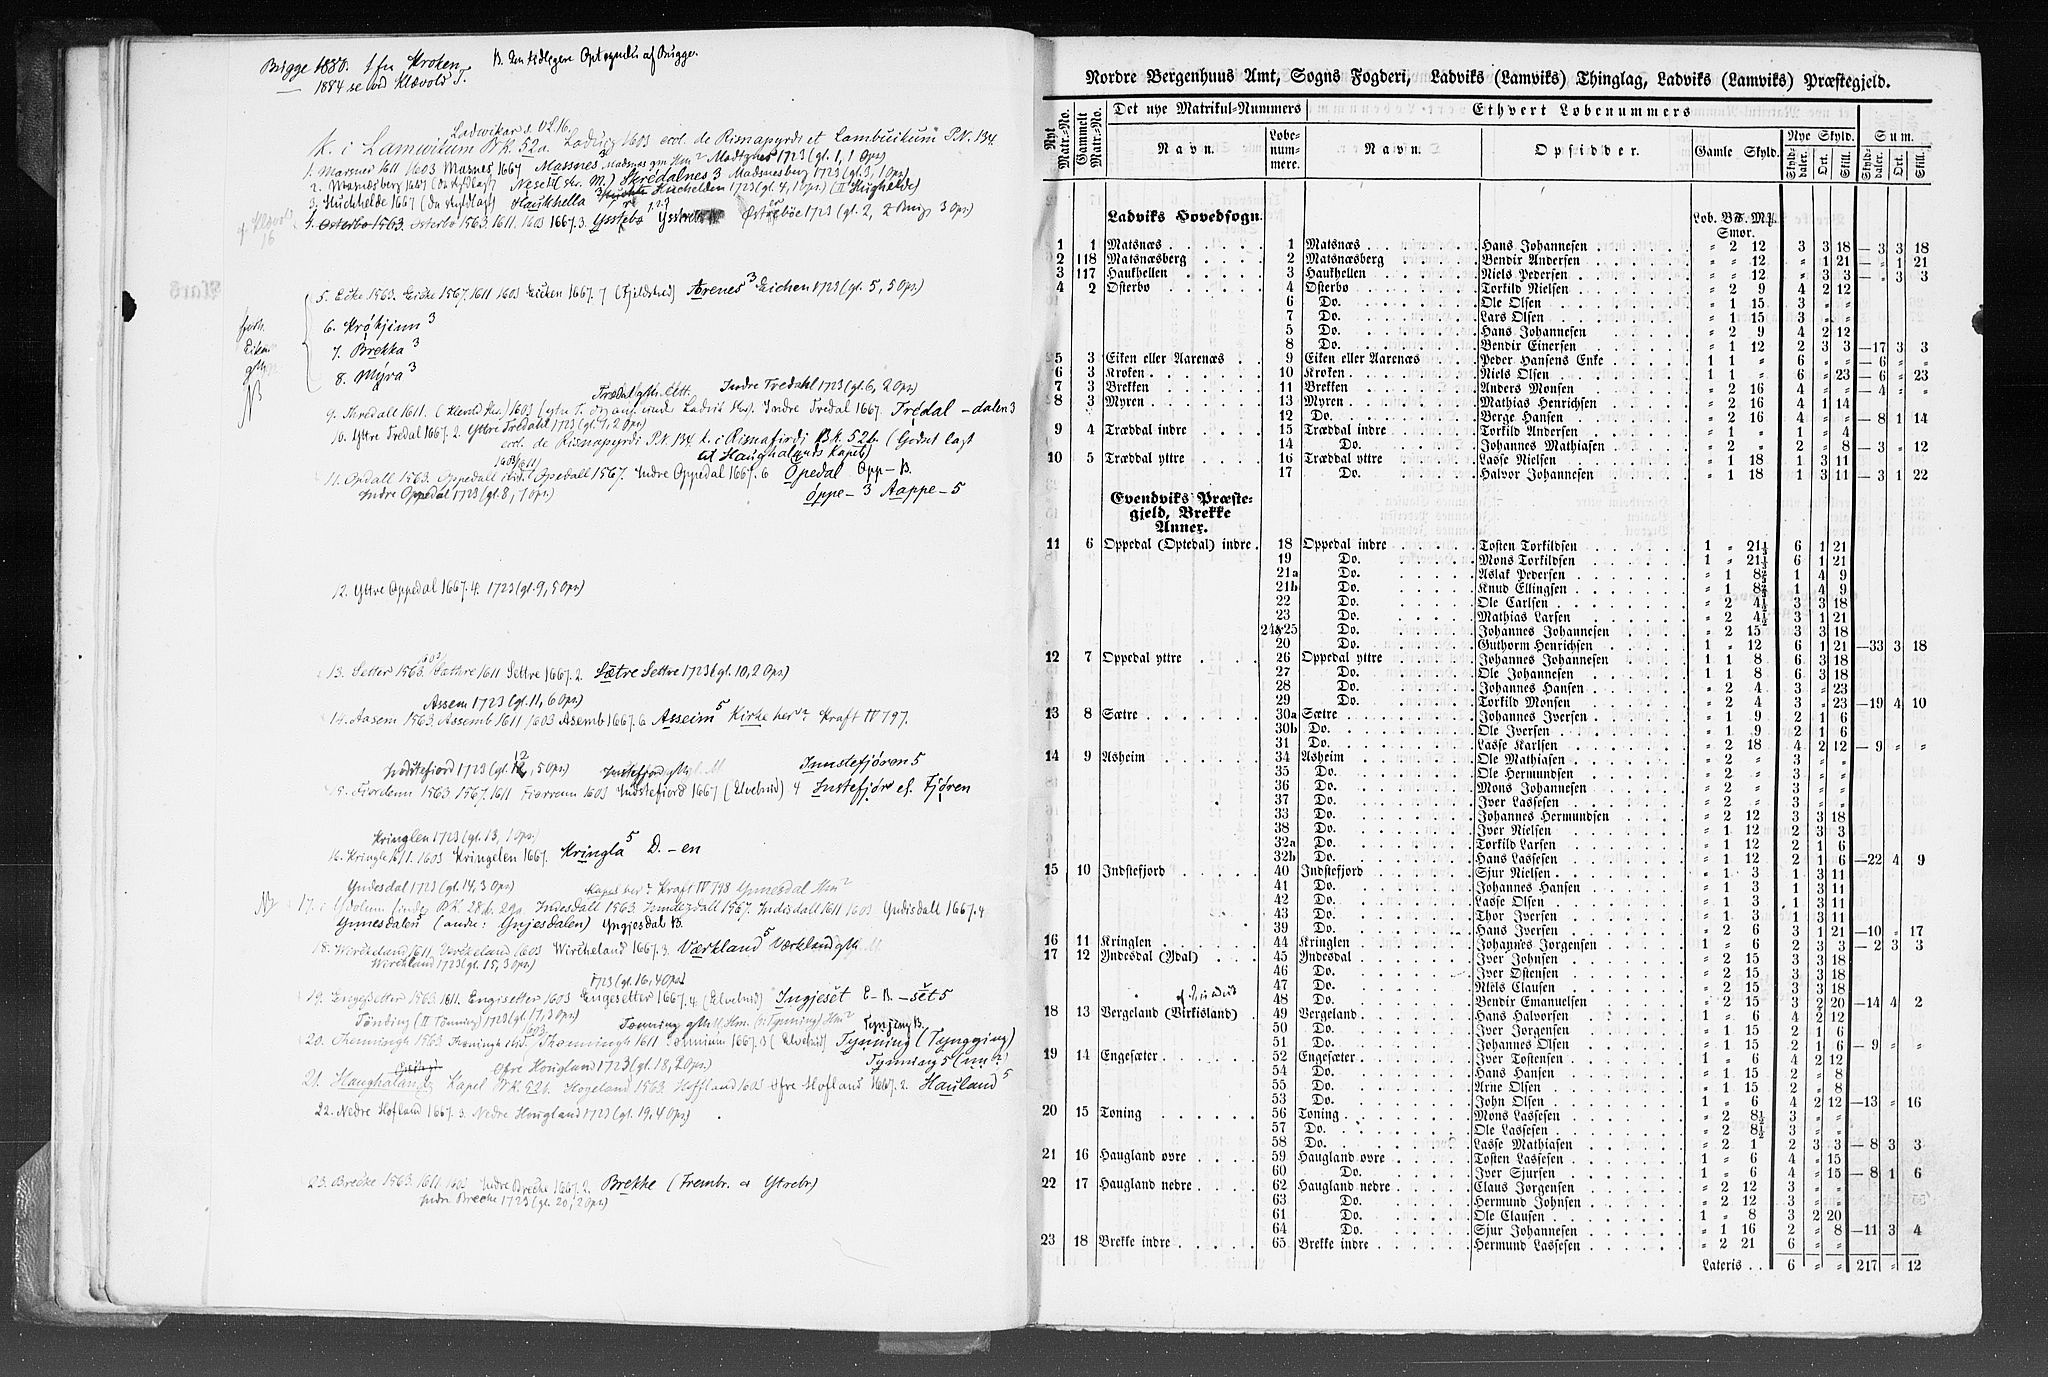 Brügge 1880. 1 fra Kroken B. Den tidligere Optegnelse af Brügge.
1884 se ved Klævold T.
Ladwikar s. OL.16.
K. i Lamwikum BK. 52a. 1603 eccl. de Risnapyrdi et Lambuikum P.N. 134.
1. Marsner 1611 1603 Masnes 1667 Massnes Madsnes gm Hm² Madtznes 1723 (gl. 1, 1 Ops)
2. Masnesberg 1667 (Ou skyldlagt) Neset (skr. M.) Skredalnes 3 Madsnesberg 1723 (gl. 3, 1 Ops)
3. Huchhelde 1667 (Ou skyldlagt) Haukhella 3 Huchelden 1723 (gl. 4, 1 Ops) (II Hughelde)
4. Osterbø 1563. Osterbø 1563. 1611. 1603 1667.3. Ystebø Østreböe 1723 (gl. 2, 2 Brug 3 Ops)
5. Ecke 1563. Ecke 1567. 1611 1603 Eichen 1667. 7 (Fjeldshed) Årenes 3 Eichen 1723 (gl. 5, 5 Ops)
6. Krøkjinn 3
7. Brekka 3
8. Mýra 3
NB
Trædal gm. Indre Tredahl 1723 (gl. 6, 2 Ops)
9. Thredall 1611. Indre Tredal 1667. Trédal – dalen 3
10. Yttre Tredal 1667. 2. Yttre Tredahl 1723 (gl. 7, 2 Ops)
eccl. de Risnapyrdi P.N. 134 k. i Risnafirdi BK. 52b. (Godset lagt
at Haughalands Kapel)
11. Opdall 1563. Oppedall Opedall 1567. Indre Oppedal 1667. 6 Öpedal Opp – B.
Indre Oppedal 1723 (gl. 8, 7 Ops) öppe – 3 Aappe – 5
12. Yttre Oppedal 1667. 4. 1723 (gl. 9, 5 Ops)
13. Setter 1563. Sathre 1611 Settre 1667. 2. Sætre Settre 1723 (gl. 10, 2 Ops)
Assem 1723 (gl. 11, 6 Ops)
14. Aasem 1563 Assemb 1611 1603 Asemb 1667. 6 Asseim 5 Kirke her? Kraft IV 797.
Indstefiord 1723 (gl. 12, 5 Ops) Indstefjord gM Innstefjören 5
15. Fiordenn 1563 1567. 1611 Fiorrenn 1603 Indstefiord 1667 (Elvebrud) 4 Instefjör el. Fjören
Kringlen 1723 (gl. 13, 1 Ops)
16. Kringle 1611. 1603 Kringelen 1667. Kringla 5 D. – en
Yndesdal 1723 (gl. 14, 3 Ops) Kapel her? Kraft IV 798 Ynnesdal Hm²
17. i Ydolum (inde) BK. 28b. 29a. Indesdall 1563. Inndezdall 1567. Indisdall 1611 1603 Yndisdall 1667. 4
Ynnesdalen (andre: Ynjesdalen) Yngjesdal B.
18. Werckeland 1611 Verckeland 1603 Wircheland 1667. 3. Værkland 5 Værkland gM
Wirchland 1723 (gl. 15, 3 Ops)
1723 (gl. 16, 4 Ops)
19. Engesetter 1563. 1611. Engisetter 1603 Engesetter 1667. 4. (Elvebrud) Ingjeset E – B. – sět 5
Tönding (II Tönning) 1723 (gl. 17, 3 Ops) Tonning gM Hm. Hm² Tynjing B.
20. Thenningh 1563 Thonningh 1611 1667. 3 (Elvebrud) Tynning (Tyngging)
Øfre Hougland 1723 (gl. 18, 2 Ops) Tynning 5
21. Haughaland Kapel BK. 52b. Hogeland 1563 Hoffland 1603 Øfre Hofland 1667. 2. Hauland 5
22. Nedre Hofland 1667. 3. Nedre Hougland 1723 (gl. 19, 4 Ops)
23. Brecke 1563. 1611. 1603 Indre Brecke 1667. 2. Brekke (Frembr. & Ytrebr)
Indre Brecke 1723 (gl. 20, 2 Ops)
Nordre Bergenhuus Amt, Sogns Fogderi, Ladviks (Lamviks) Thinglag, Ladviks (Lamviks) Præstegjeld.
Nyt Matr.-No. Gammelt Matr.-No. Det nye Matrikul-Nummers Ethvert Løbenummers
Navn. Løbe-nummere. Navn. Opsidder. Gamle Skyld. Nye Skyld. Sum.
Skyld-daler. Ort. Skill. Skyld-daler. Ort. Skill.
Ladviks Hovedsogn. Løb. Bß. Mß. Smør.
1 1 Matsnæs 1 Matsnæs Hans Johannesen " 2 12 3 3 18 — 3 3 18
2 118 Matsnæsberg 2 Matsnæsberg Bendix Andersen " " 12 " 1 21 — " 1 21
3 117 Haukhellen 3 Haukhellen Niels Pedersen " " 12 " 3 3 — " 3 3
4 2 Østerbø 4 Østerbø Torkild Nielsen " 2 9 4 2 12
6 Do. Ole Olsen " 1 15 3 " "
7 Do. Lars Olsen " 1 15 3 " "
5 Do. Hans Johannesen " 2 9 4 2 12
8 Do. Bendix Einersen " 1 12 2 3 3 —17 3 3
5 3 Eiken eller Aarenæs 9 Eiken eller Aarenæs Peder Hansens Enke 1 1 " 6 " " — 6 " "
6 3 Kroken 10 Kroken Niels Olsen 1 1 " 6 " 23 — 6 " 23
7 3 Brekken 11 Brekken Anders Monsen " 2 16 4 " " — 4 " "
8 3 Myren 13 Myren Mathias Henrichsen " 2 16 4 1 14
12 Do. Berge Hansen " 2 16 4 " " — 8 1 14
9 4 Træddal indre 15 Træddal indre Torkild Andersen " 1 " 1 " 4
14 Do. Johannes Mathiasen " 2 " 2 " 8 — 3 " 12
10 5 Træddal yttre 16 Træddal yttre Lasse Nielsen " 1 18 1 3 11
17 Do. Halvor Johannesen " 1 18 1 3 11 — 3 1 22
Evendviks Præste-
gjeld, Brekke
Annex.
11 6 Oppedal (Optedal) indre 18 Oppedal indre Tosten Torkildsen 1 " 21½ 6 1 21
19 Do. Mons Torkildsen 1 " 21½ 6 1 21
21a Do. Aslak Pedersen " 1 8½ 1 4 9
21b Do. Knud Ellingsen " 1 8½ 1 4 9
22 Do. Ole Carlsen " 2 4½ 3 3 18
23 Do. Mathias Larsen " 2 4½ 3 1 21
24&25 Do. Johannes Johannesen " 2 15 3 3 18
20 Do. Guthorm Henrichsen 1 " 12 6 1 21 —33 3 18
12 7 Oppedal yttre 26 Oppedal yttre Johannes Johannesen 1 1 8 6 3 18
27 Do. Ole Johannesen 1 1 8 6 3 18
28 Do. Johannes Hansen " 2 4 3 " 23
29 Do. Torkild Monsen " 2 4 3 " 23 —19 4 10
13 8 Sætre 30a Sætre Johannes Iversen " 1 9 2 1 6
30b Do. Ole Iversen " 1 9 2 1 6
31 Do. Lasse Karlsen " 2 18 4 2 12 — 9 " "
14 9 Asheim 34 Asheim Ole Mathiasen " 2 " 3 " "
35 Do. Ole Hermundsen " 2 " 3 " "
36 Do. Mons Johannesen " 2 " 3 " "
37 Do. Iver Lassesen " 2 " 3 " "
33 Do. Johannes Hermundsen " 2 12 3 3 18
38 Do. Iver Nielsen " 1 12 2 3 3
32a Do. Torkild Larsen " 1 12 2 1 6
32b Do. Hans Lassesen " 1 12 2 1 6 —22 4 9
15 10 Indstefjord 40 Indstefjord Sjur Nielsen " 1 3 1 3 11
41 Do. Johannes Hansen " 1 3 1 3 11
42 Do. Lasse Olsen " 1 3 1 3 11
43 Do. Thor Iversen " 1 3 1 3 11
39 Do. Hans Iversen " 2 6 3 1 21 —10 " 17
16 11 Kringlen 44 Kringlen Johannes Jørgensen 1 " 6 2 3 3 — 2 3 3
17 12 Yndesdal (Ydal) 45 Yndesdal Iver Johnsen " 2 15 3 3 18
46 Do. Iver Østensen " 2 15 3 3 18
47 Do. Niels Clausen " 2 15 3 3 18
48 Do. Bendix Emanuelsen " 2 15 3 2 20 —14 4 2
18 13 Bergeland (Birkisland) 49 Bergeland Hans Halvorsen 1 " 6 4 2 12
50 Do. Iver Jørgensen " 1 15 2 1 6
51 Do. Johannes Olsen " 1 15 2 1 6 — 9 " "
19 14 Engesæter 52 Engesæter Iver Tostensen 1 " 6 4 2 12
54 Do. Hans Hansen " 1 15 2 " 8
55 Do. Arne Olsen " 1 15 2 " 8
53 Do. John Olsen 1 " 6 4 2 12 —13 " 16
20 15 Toning 56 Toning Mons Lassesen " 2 8½ 3 " "
57 Do. Ole Lassesen " 2 8½ 3 " "
58 Do. Lasse Mathiasen " 2 1 2 3 3 — 8 3 3
21 16 Haugland øvre 59 Haugland øvre Tosten Lassesen 1 " 6 4 " 15
60 Do. Iver Sjursen 1 " 6 4 " 15 — 8 1 6
22 17 Haugland nedre 62 Haugland nedre Claus Jørgensen " 2 12 3 " "
63 Do. Hermund Johnsen " 2 12 3 " "
61 Do. Ole Clausen 1 " 8 3 2 20
64 Do. Sjur Johannesen " 1 16 2 " 8 —11 3 4
23 18 Brekke indre 65 Brekke indre Hermund Lassesen " 2 21 6 " "
Lateris . . 6 " " 217 " 12